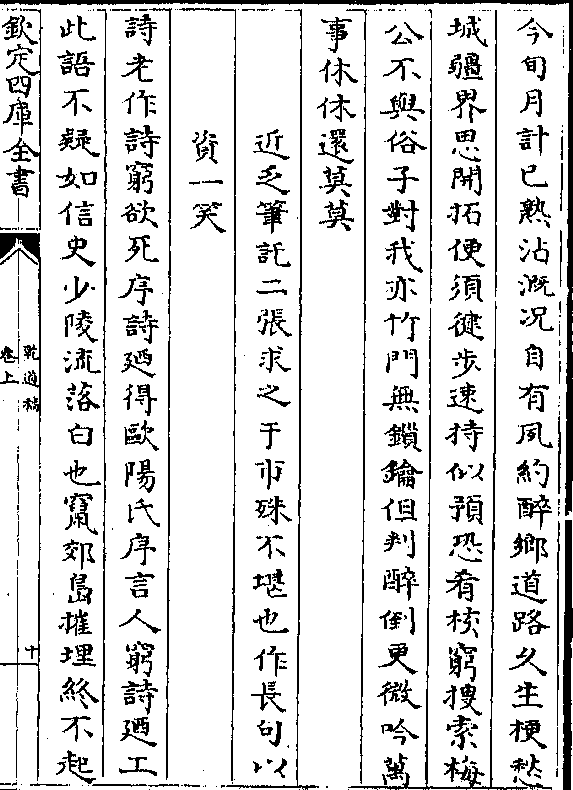 今旬月計已熟沾溉况自有夙約醉鄉道路久生梗愁
城疆界思開拓便須徤步速持似預恐肴核窮搜索梅
公不與俗子對我亦竹門無鎖鑰但判醉倒更微吟萬
事休休還莫莫
近乏筆託二張求之于市殊不堪也作長句以
資一笑
詩老作詩窮欲死序詩廼得歐陽氏序言人窮詩廼工
此語不疑如信史少陵流落白也竄郊島摧埋終不起
欽定四庫全書
乾道稿
卷上
十